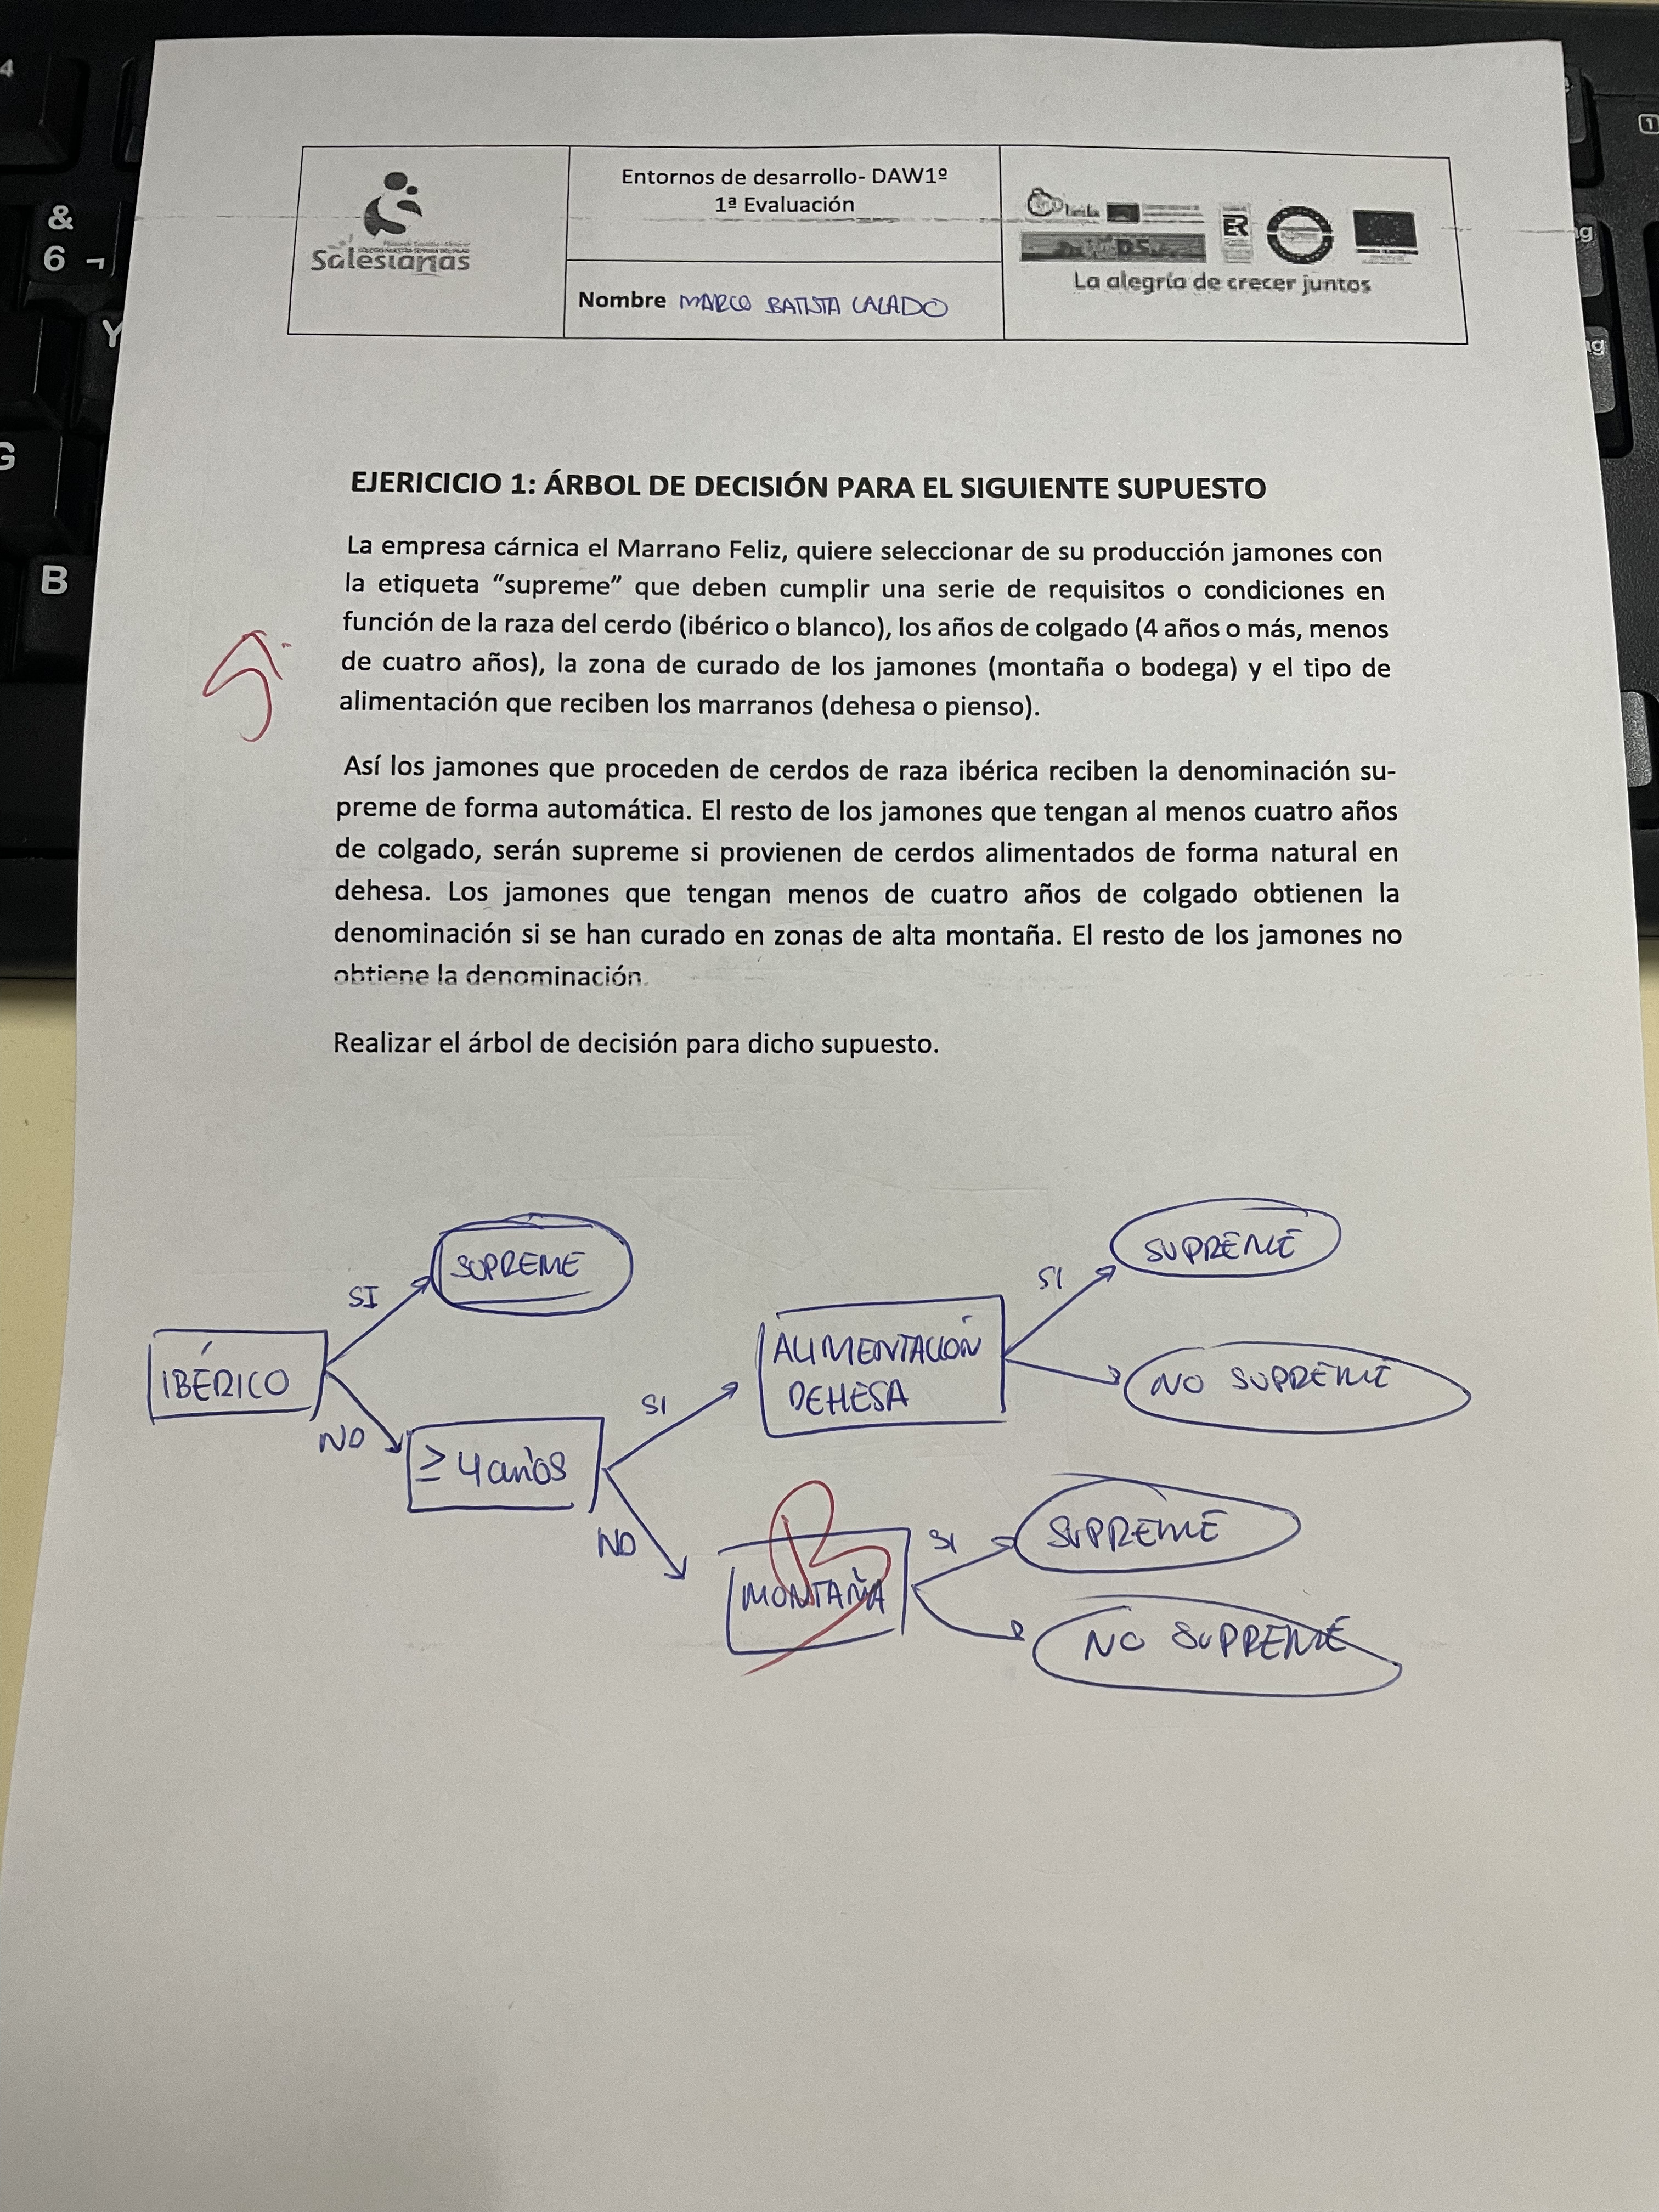 4
&
6 ¬
Y
G
B
1
Salesianas
Entornos de desarrollo- DAW1º
1ª Evaluación
Nombre MARCO BATISTA CALADO
ER
La alegría de crecer juntos
EJERICICIO 1: ÁRBOL DE DECISIÓN PARA EL SIGUIENTE SUPUESTO
La empresa cárnica el Marrano Feliz, quiere seleccionar de su producción jamones con
la etiqueta “supreme” que deben cumplir una serie de requisitos o condiciones en
función de la raza del cerdo (ibérico o blanco), los años de colgado (4 años o más, menos
de cuatro años), la zona de curado de los jamones (montaña o bodega) y el tipo de
alimentación que reciben los marranos (dehesa o pienso).
Así los jamones que proceden de cerdos de raza ibérica reciben la denominación su-
preme de forma automática. El resto de los jamones que tengan al menos cuatro años
de colgado, serán supreme si provienen de cerdos alimentados de forma natural en
dehesa. Los jamones que tengan menos de cuatro años de colgado obtienen la
denominación si se han curado en zonas de alta montaña. El resto de los jamones no
obtiene la denominación.
Realizar el árbol de decisión para dicho supuesto.
IBÉRICO
SI
SUPREME
NO
≥ 4 años
SI
ALIMENTACIÓN
DEHESA
SI
SUPREME
NO SUPREME
NO
MONTAÑA
SI
SUPREME
NO SUPREME